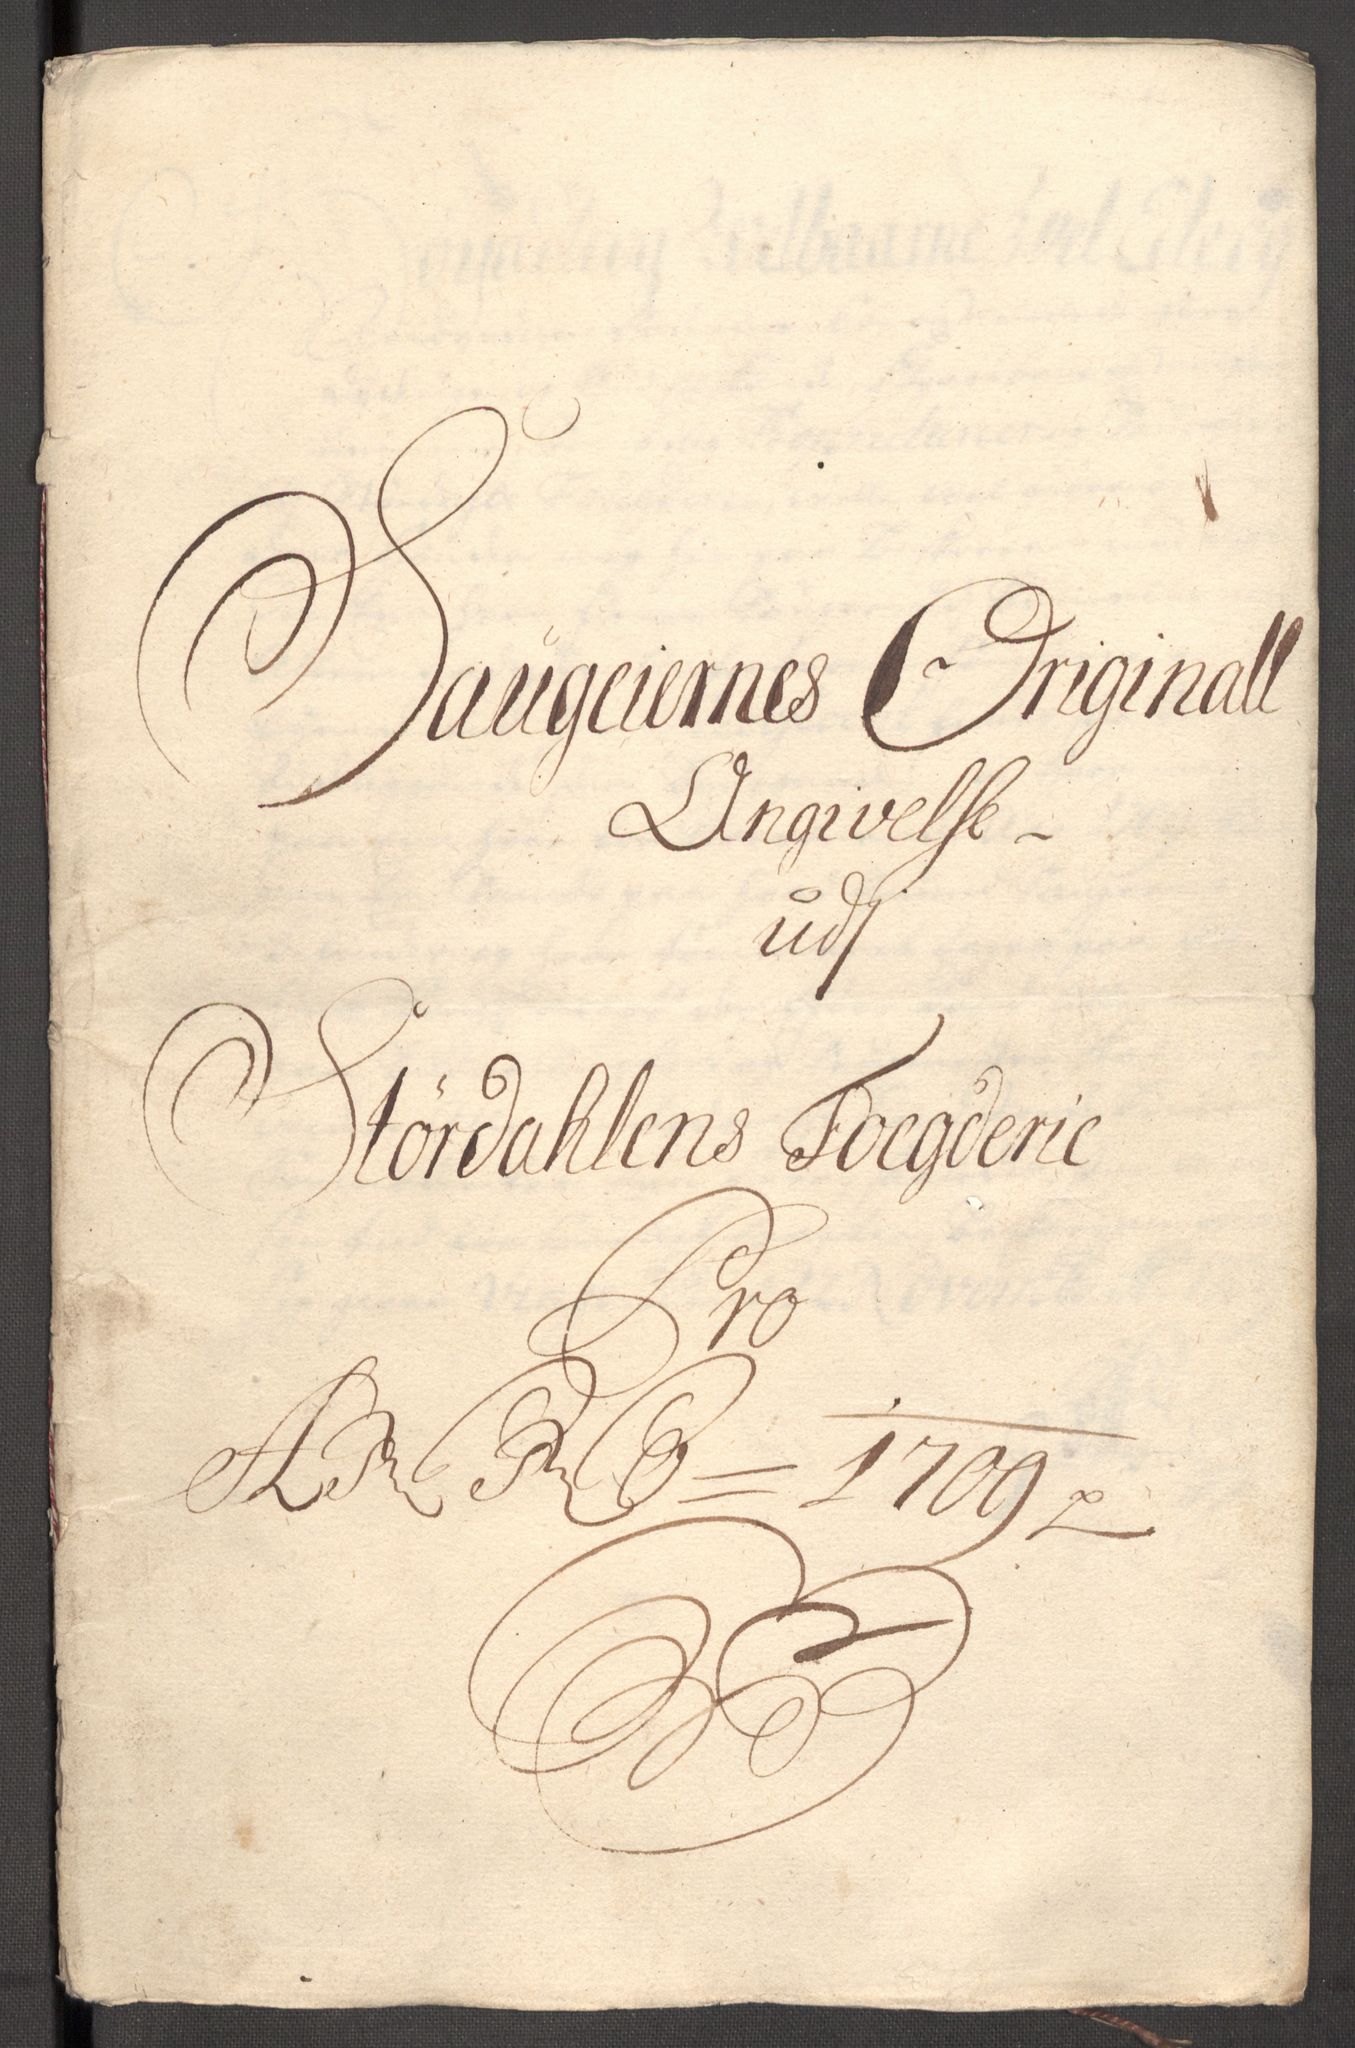 Saugeiernes Originall
Angivelse
udj
Størdahlens Foegderie
Pro
ANNO = 1709